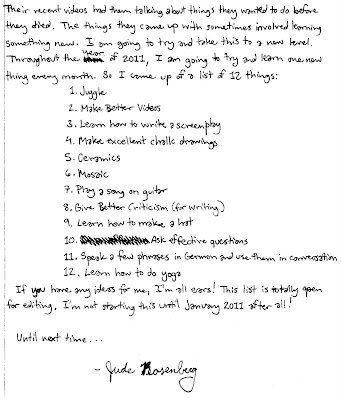 Their recent videos had them talking about things they wanted to do before
they died. The things they came up with sometimes involved learning
something new. I am going to try and take this to a new level.
Throughout the year of 2011, I am going to try and learn one new
thing every month. So I came up of a list of 12 things:
1. Juggle
2. Make Better Videos
3. Learn how to write a screenplay
4. Make excellent chalk drawings
5. Ceramics
6. Mosaic
7. Play a song on guitar
8. Give Better Criticism (for writing)
9. Learn how to make a hat
10. Ask effective questions
11. Speak a few phrases in German and use them in conversation
12. Learn how to do yoga
If you have any ideas for me, I'm all ears! This list is totally open
for editing. I'm not starting this until January 2011 after all!
Until next time...
- Jude Rosenberg